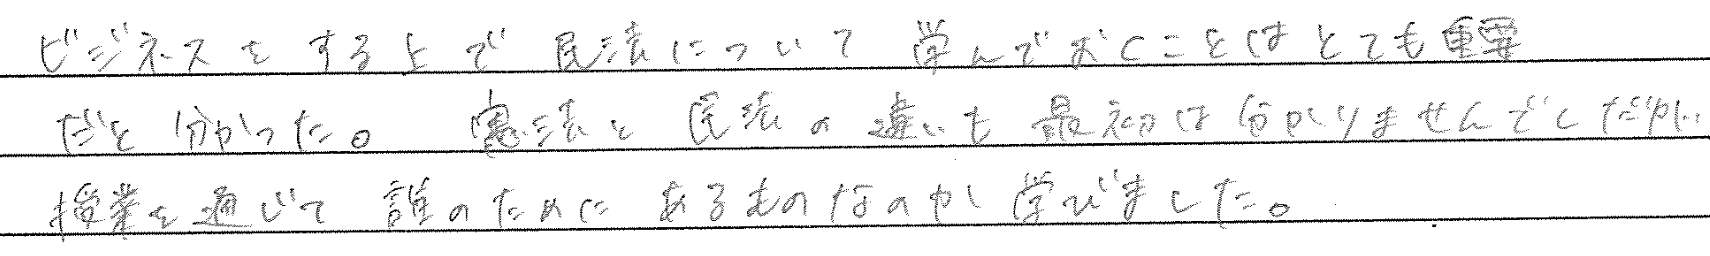 ビジネスをする上で民法について学んでおくことはとても重要
だと分かった。憲法と民法の違いも最初は分かりませんでしたが、
授業を通じて誰のためにあるものなのか学びました。